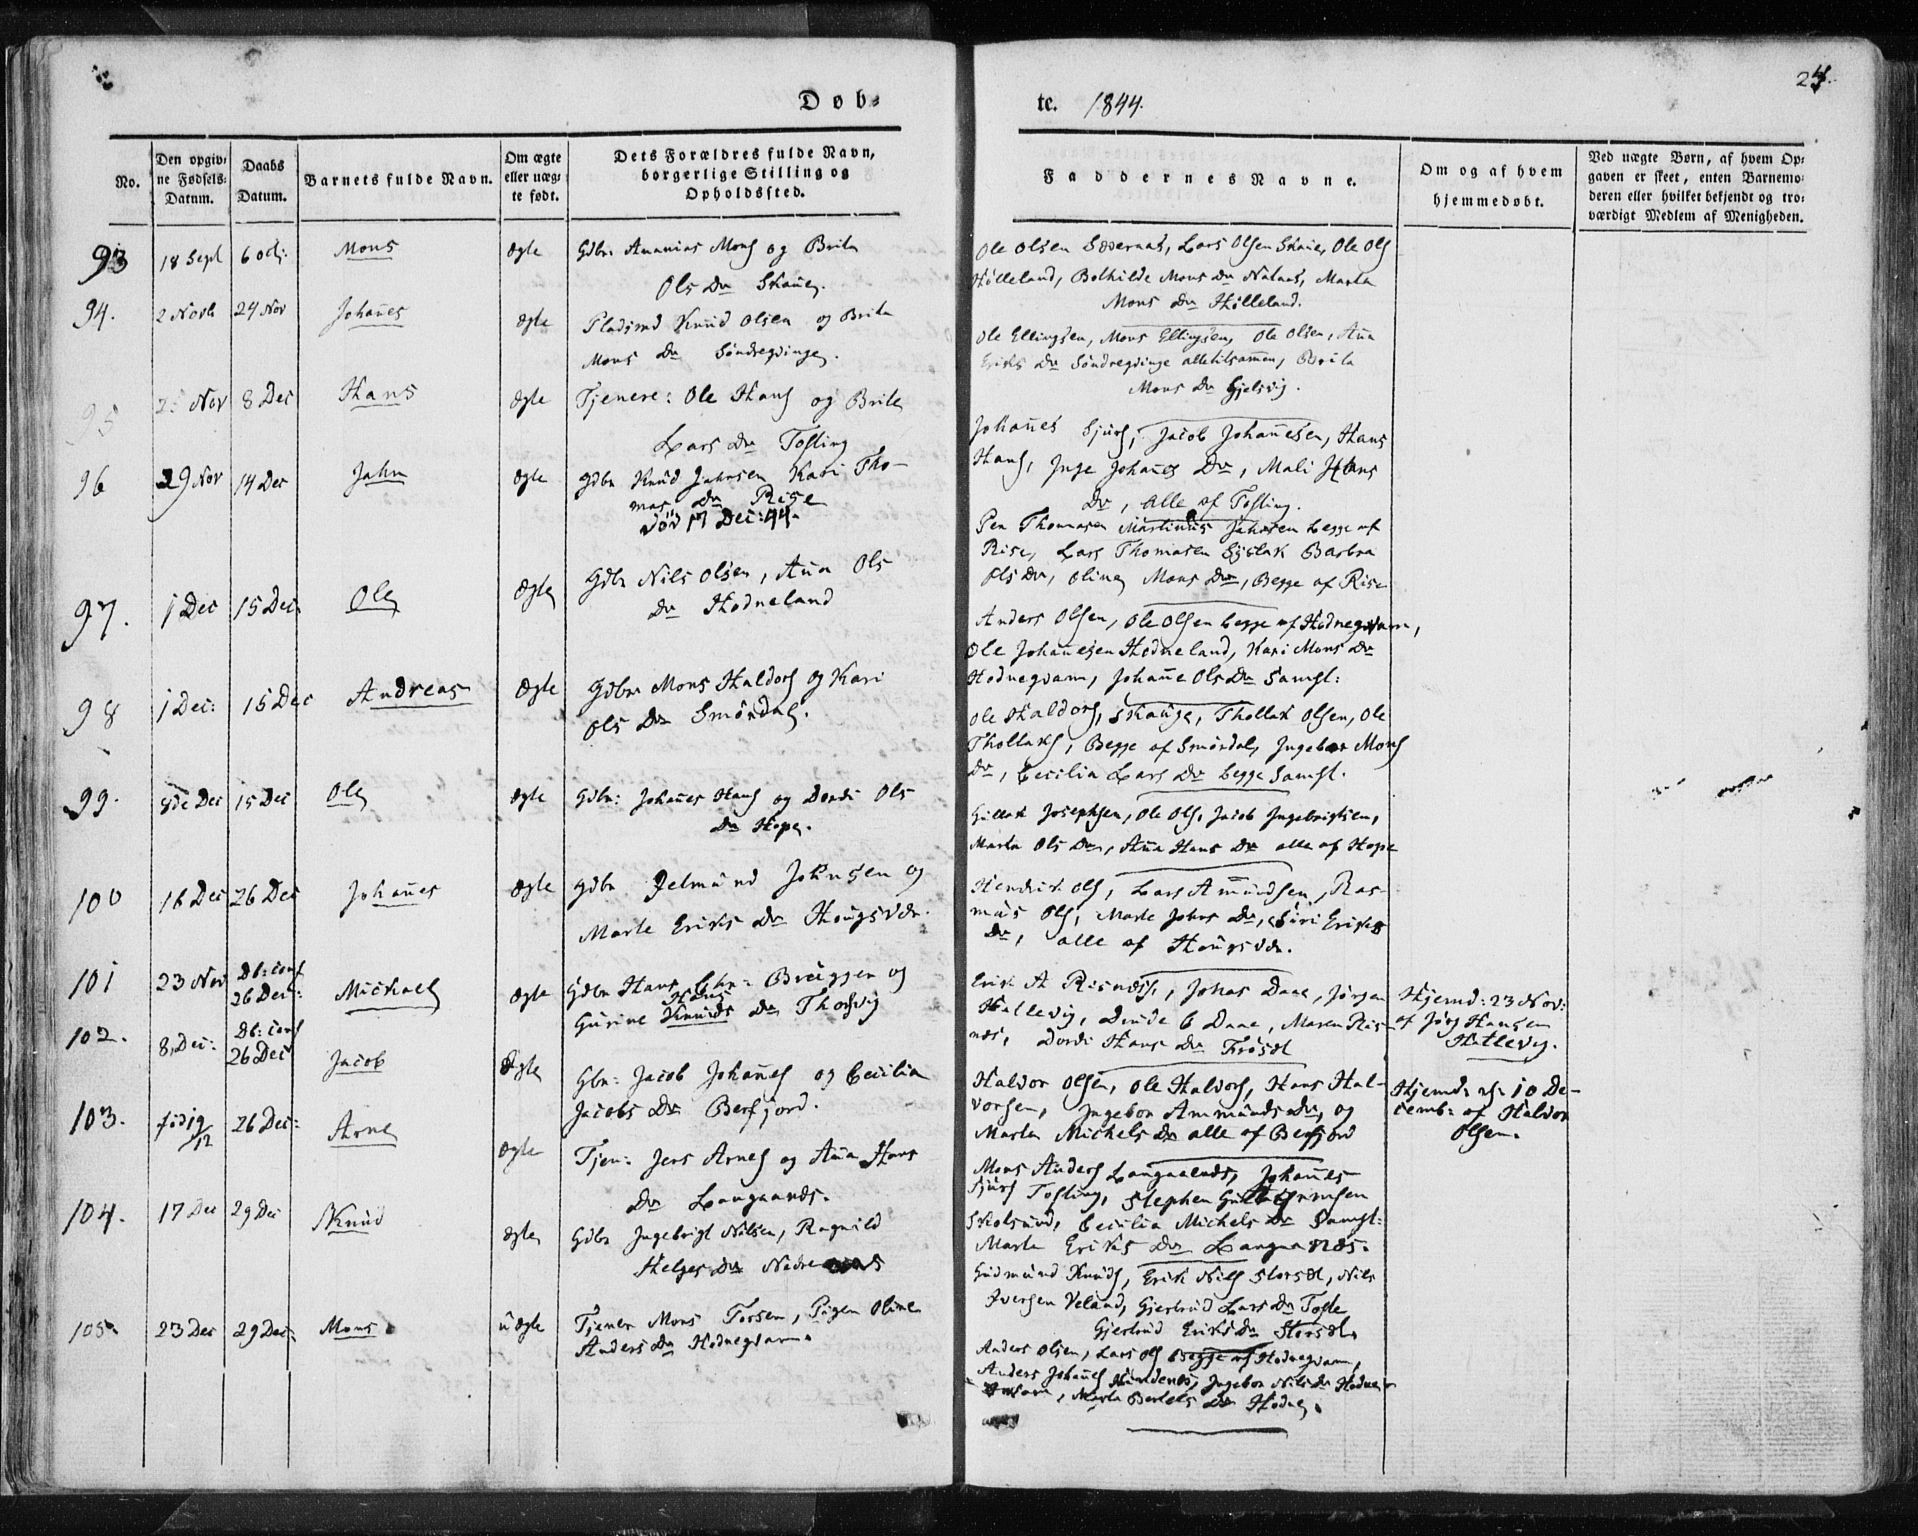 Døb-
No.
Den opgiv-
ne Fødsels-
Datum.
Daabs
Datum.
Barnets fulde Navn.
Om ægte
eller uæg-
te født.
Dets Forældres fulde Navn,
borgerlige Stilling og
Opholdssted.
93 18 Sept 6 Oct: Mons Ægte Gdbr: Ananias Mons og Brita
Ols Dr Skaue
94. 2 Novb 24 Nov Johanes Ægte Pladsmd Knud Olsen og Brita
Mons Dr Søndregvinge.
95 Nov 8 Dec Hans Ægte Tjenere: Ole Hans og Brite
Lars Dr Tofting
96 29 Nov 14 Dec Jahn Ægte Gdbr Knud Jahnsen Kari Tho-
mas Dr Rise
død 17 Dec: 44.
97. 1 Dec 15 Dec Ole Ægte Gdbr Nils Olsen, Ana Ols
Dr Hodneland
98 1 Dec: 15 Dec Andreas Ægte Gdbr Mons Haldors og Kari
Ols Dr Smördal.
99. 8de Dec 15 Dec Ole Ægte Gdbr: Johanes Hans og Dordi Ols
Dr Hope.
100 16 Dec 26 Dec Johanes Ægte Gdbr Jelmund Johnsen og
Marte Eriks Dr Hougsdr.
101 23 Nov Db: conf
26 Dec: Michael Ægte Gdbr Hans Chr: Brüggen og
Hans
Gurine Knuds Dr
102. 8 Dec: Db: conf
26 Dec Jacob Ægte Gbr: Jacob Johanes og Cecilia
Jacobs Dr Berfjord.
103. 26 Dec: Arne Ægte Tjen: Jens Arnes og Ana Hans
Dr Langaards.
104. 17 Dec 29 Dec Knud Ægte Gdbr Ingebrigt Nilsen, Ragnild
Helges Dr Nedre
105. 23 Dec 29 Dec: Mons uægte Tjener Mons Torsen, Pigen Oline
Anders Dr Hodnegvam.
te. 1844.
24.
Faddernes Navne.
Om og af hvem
hjemmedøbt.
Ved uægte Børn, af hvem Op-
gaven er skeet, enten Barnemo-
deren eller hvilket bekjendt og tro-
værdigt Medlem af Menigheden.
Ole Olsen Sævernas, Lars Olsen Skaue, Ole Ols
Hölleland, Bolhilde Mons Dr Nataas, Marta
Mons Dr Hölleland.
Ole Ellingsen, Mons Ellingsen, Ole Olsen, Ana
Eriks Dr Søndregvinge alletilsamen, Brita
Mons Dr Gjelsvig.
Johanes Sjurs, Jacob Johanesen, Hans
Hans, Inge Johanes Dr, Mali Hans
Dr, alle af Tofting.
Peu Thomasen Martinus Jahnsen begge af
Rise, Lars Thomasen Barbra
Ols Dr, Oline Mons Dr, Begge af Rise
Anders Olsen, Ole Olsen begge af Hodnegvam,
Ole Johanesen Hodneland, Kari Mons Dr
Hodnegvam, Johane Ols Dr Samst:
Ole Haldors, Skauge, Thollak Olsen, Ole
Thollaks, Begge af Smördal, Ingebor Mons
Dr, Cecilia Lars Dr begge Samst.
Gullak Josephsen, Ole Ols, Jacob Ingebrigtsen,
Marta Ols Dr, Ana Hans Dr alle af Hope
Hendrik Ols, Lars Amundsen, Ras-
mus Ols, Marte Johns Dr, Siri Eriks
Dr, alle af Hougsdr.
Erik A Risnæss, Johas Daae, Jørgen
Hallevig, Dende C Daae, Maren Ris-
næs, Dordi Hans Dr
Hjemd: 23 Nov:
af Jørg Hansen
Hallevig.
Haldor Olsen, Ole Haldors, Hans Hal-
vorsen, Ingebor Ammunds Dr, og
Marta Michels Dr alle af Berfjord
Hjemd: 10 De-
cemb: af Haldor
Olsen.
Mons Anders Langaards, Johanes
Sjurs Tofting, Stephen
Cecilia Michels Dr Samst:
Marta Eriks Dr
Gudmund Knuds, Erik Nils Storset, Nils
Iversen Veland, Gjertrud Lars Dr
Gjertrud Eriks Dr Storset.
Anders Olsen, Lars Ols begge af Hodnegvam,
Anders Johanes Ingebor Nils Dr Hodne-
gvam, Marta Bertels Dr Hodne.